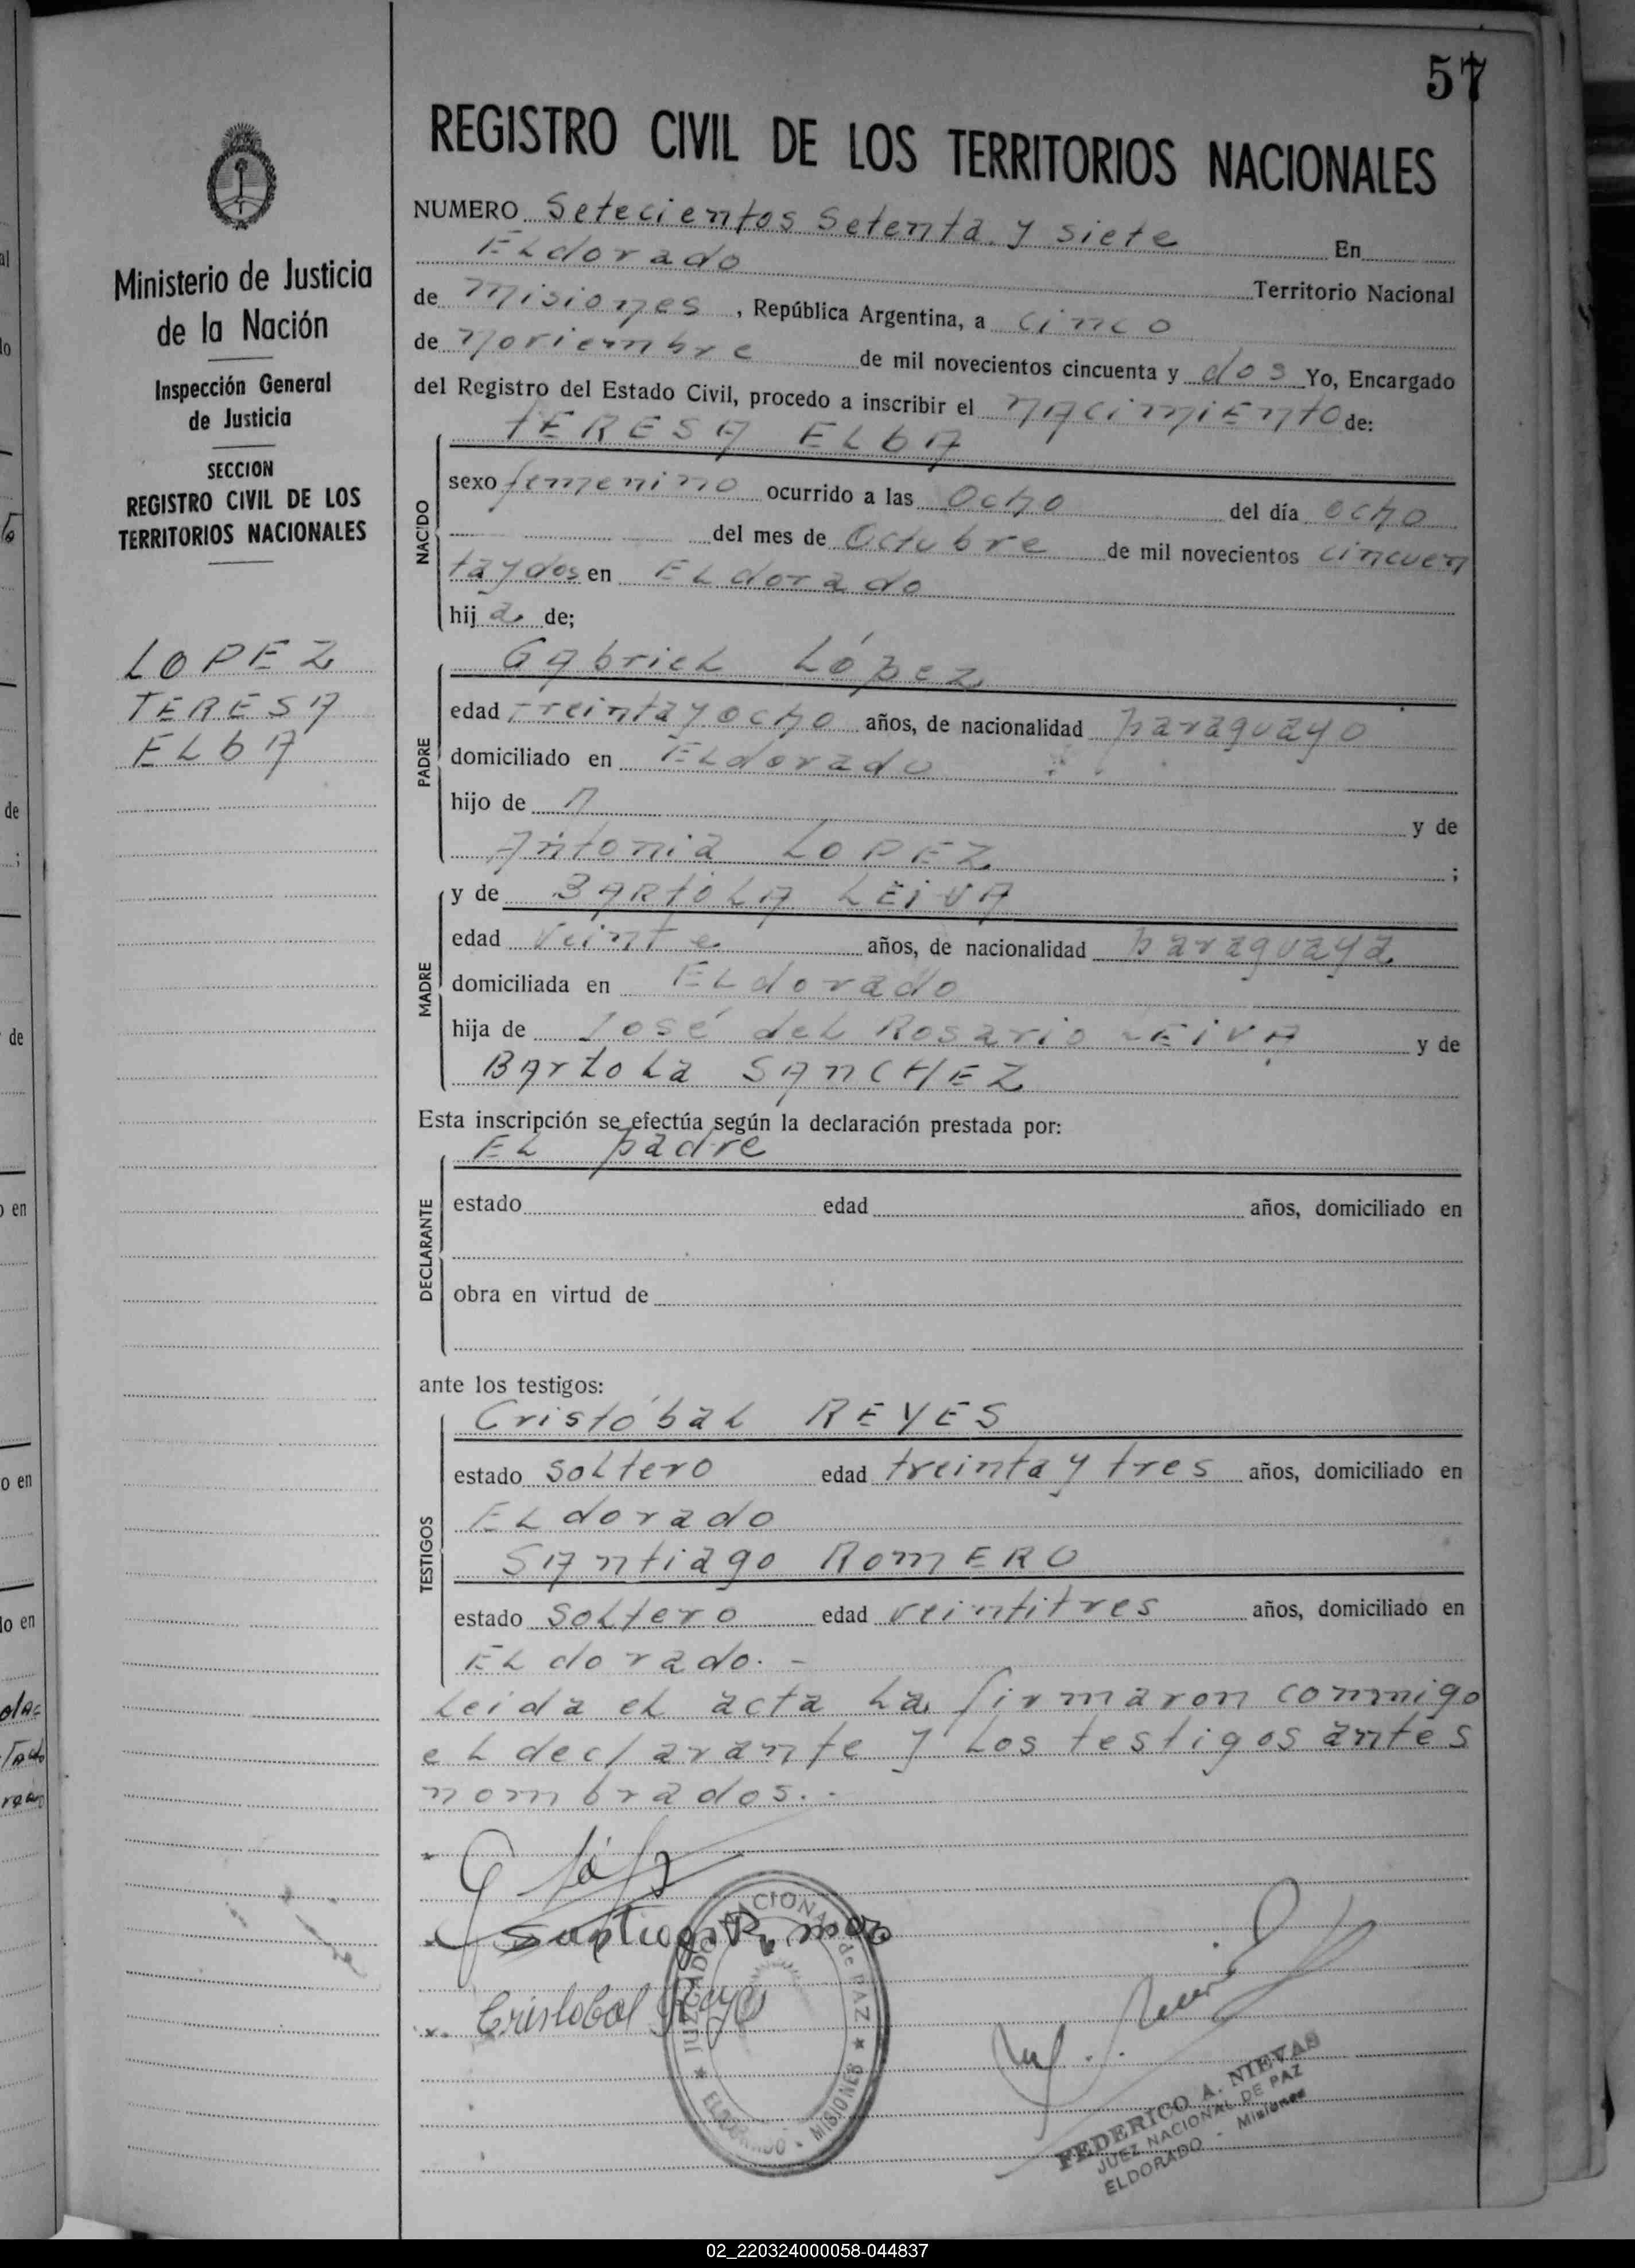 57
REGISTRO CIVIL DE LOS TERRITORIOS NACIONALES
Ministerio de Justicia
de la Nación
Inspección General
de Justicia
SECCION
REGISTRO CIVIL DE LOS
TERRITORIOS NACIONALES
LOPEZ
TERESA
ELbA
NUMERO Setecientos Setenta y siete En
ELdorado Territorio Nacional
de Misiones, República Argentina, a cinco
de noviembre de mil novecientos cincuenta y dos Yo, Encargado
del Registro del Estado Civil, procedo a inscribir el nacimiento de:
TERESA ELbA
NACIDO
sexo femenino ocurrido a las ocho del día ocho
del mes de Octubre de mil novecientos cincuen
ta y dos en ELdorado
hija de;
PADRE
GAbrieL López
edad treinta y ocho años, de nacionalidad paraguayo
domiciliado en ELdorado
hijo de n y de
Antonia LOPEZ ;
MADRE
y de BARtoLA LEiVA
edad veinte años, de nacionalidad paraguaya
domiciliada en ELdorado
hija de José deL Rosario LEiVA y de
BArtoLa SAnCHEZ
Esta inscripción se efectúa según la declaración prestada por:
EL padre
DECLARANTE
estado edad años, domiciliado en
obra en virtud de
ante los testigos:
TESTIGOS
CristóbaL REYES
estado soLtero edad treinta y tres años, domiciliado en
ELdorado
SAntiago RomERO
estado soLtero edad veintitres años, domiciliado en
ELdorado.-
Leida eL acta La firmaron conmigo
eL declarante y Los testigos antes
nombrados.-
Cristobal Reyes
JUZGADO NACIONAL de PAZ
ELDORADO - MISIONES
FEDERICO A. NIEVAS
JUEZ NACIONAL DE PAZ
ELDORADO - Misiones
02_220324000058-044837